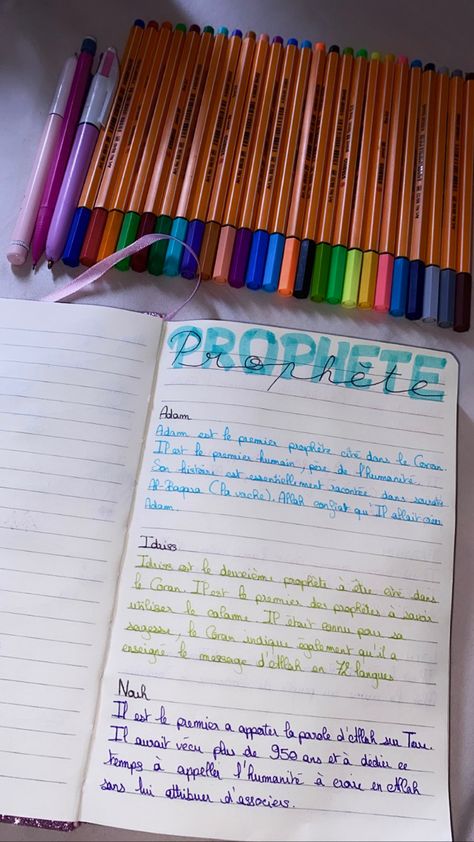 PROPHETE
Prophète
Adam
Adam est le premier prophète cité dans le Coran.
Il est le premier humain, père de l'humanité.
Son histoire est essentiellement racontée dans sourate
Al-Baqara (la vache). Allah confiat qu'Il allait créer
Adam.
Idriss
Idriss est le deuxième prophète à être cité dans
le Coran. Il est le premier des prophètes à savoir
utiliser le calame. Il était connu pour sa
sagesse, le Coran indique également qu'il a
enseigné le message d'Allah en 72 langues
Nouh
Il est le premier a apporter la parole d'Allah sur Terre.
Il aurait vécu plus de 950 ans et à dédier ce
temps à appeller l'humanité à croire en Allah
sans lui attribuer d'associers.